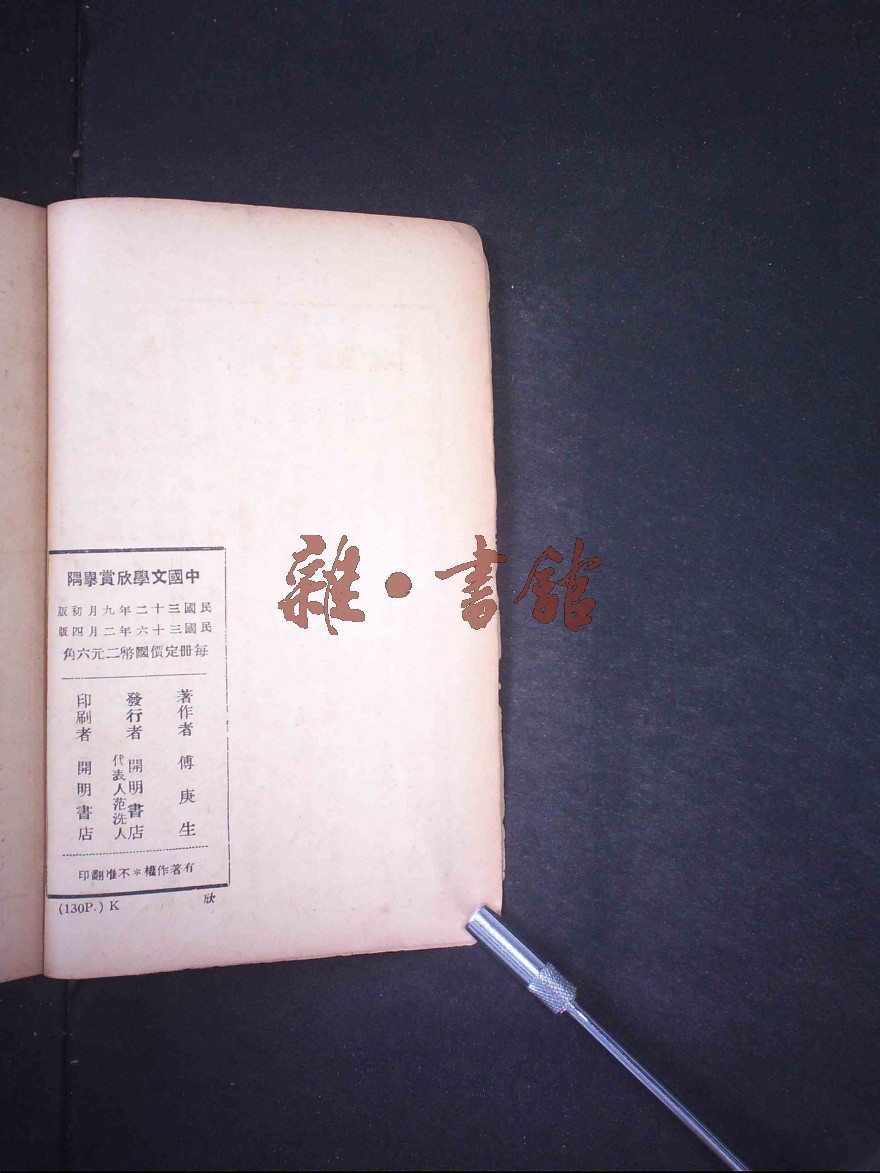 中國文學欣賞擧隅
民國三十二年九月初版
民國三十六年二月四版
每冊定價國幣二元六角
著作者 傅庚生
發行者 開明書店
代表人范洗人
印刷者 開明書店
有著作權＊不准翻印
(130P.) K
欣
雜·書館